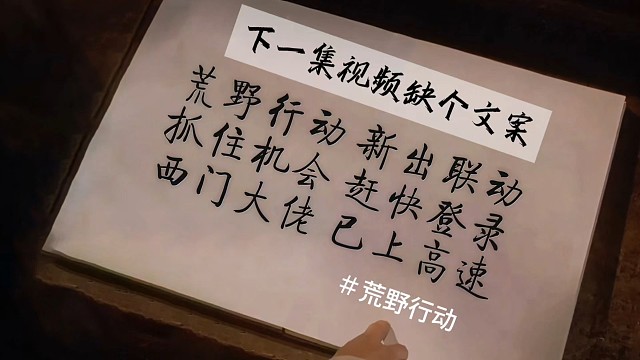 下一集视频缺个文案
荒野行动 新出联动
抓住机会 赶快登录
西门大佬 已上高速
#荒野行动